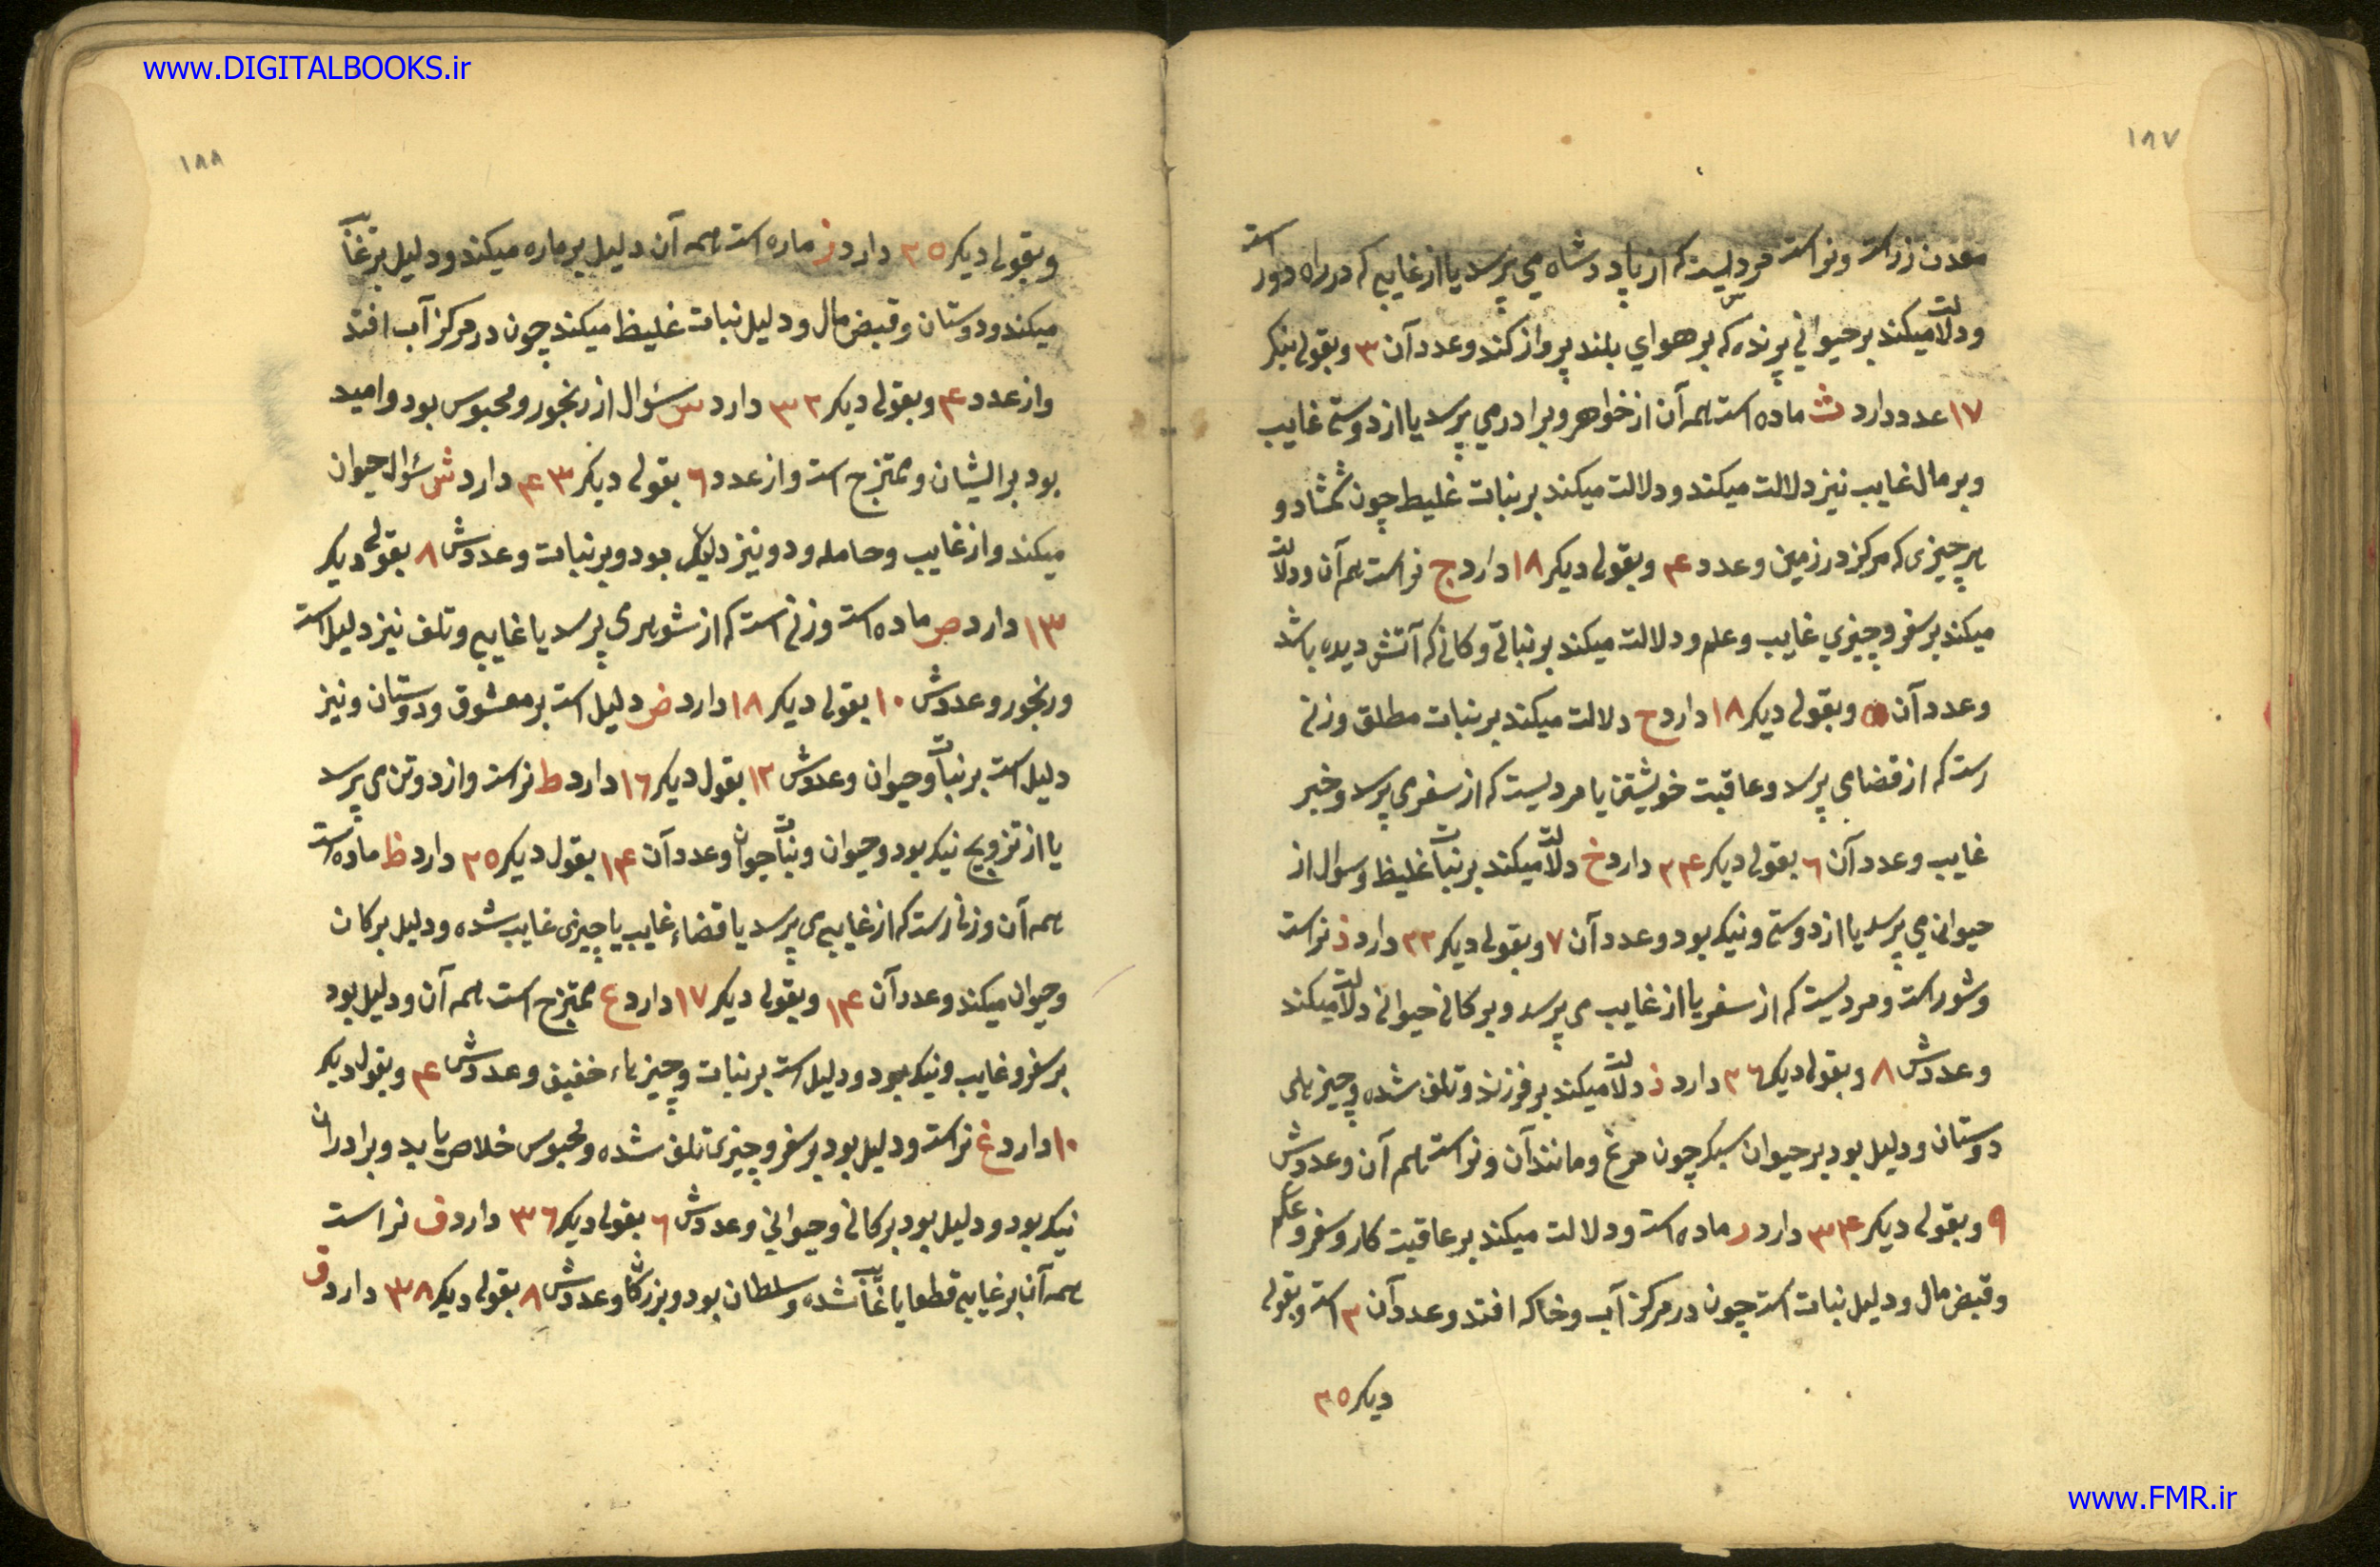 www.DIGITALBOOKS.ir
١٨٧
معدن زر است و نر است مردیست که از پادشاه می پرسد یا از غایبی که در راه دور است
و دلالت میکند بر حیوانی پرنده که بر هوای بلند پرواز کند و عدد آن ٣ و بقولی دیکر
١٧ عدد دارد ث ماده است همه آن از خواهر و برادر می پرسد یا از دوستی غایب
و بر مال غایب نیز دلالت میکند و دلالت میکند بر نبات غلیط چون شمشاد و
هر چیزی که مرکز در زمین و عدد ۴ و بقولی دیکر ١٨ دارد ج نر است هم آن و دلالت
میکند بر سفر و چیزی غایب و علم و دلالت میکند بر نباتی و کانی که آتش دیده باشد
و عدد آن ۵ و بقولی دیکر ١٨ دارد ح دلالت میکند بر نبات مطلق و زنی
است که از قضا می پرسد و عاقبت خویشتن یا مردیست که از سفر می پرسد و خبر
غایب و عدد آن ٦ بقولی دیکر ٢۴ دارد خ دلالت میکند بر نبات غلیظ و سوال از
حیوانی می پرسد یا از دوستی و نیک بود و عدد آن ٧ و بقولی دیکر ٢٢ دارد د نر است
و شور است و مردیست که از سفر یا از غایب می پرسد و بر کانی حیوانی دلالت میکند
و عددش ٨ و بقولی دیکر ٢٦ دارد ذ دلالت میکند بر فرزند و تلف شده و چیزهای
دوستان و دلیل بود بر حیوان سبک چون مرغ و مانند آن و نر است هم آن و عددش
٩ و بقولی دیکر ٣۴ دارد ر ماده است و دلالت میکند بر عاقبت کار و سفر و علم
و قبض مال و دلیل نبات است چون در مرکز آب و خاک افتد و عدد آن ٢ است و بقولی
دیکر ٢٥
١٨٨
و بقولی دیکر ٢٥ دارد ز ماده است همه آن دلیل بر ماده میکند و دلیل بر غایب
میکند و دوستان و قبض مال و دلیل نبات غلیظ میکند چون در مرکز آب افتد
و از عدد ۴ و بقولی دیکر ٣٢ دارد س سؤال از رنجور و محبوس بود و امید
بود بر ایشان و ممتزج است و از عدد ٦ بقولی دیکر ۴٣ دارد ش سؤال حیوان
میکند و از غایب و حامله و دو نیز دلیل بود و بر نبات و عددش ٨ بقولی دیکر
١٣ دارد ص ماده است و زنی است که از شوهری پرسد یا غایبی و تلف نیز دلیل است
و رنجور و عددش ١٠ بقولی دیکر ١٨ دارد ض دلیل است بر معشوق و دوستان و نیز
دلیل است بر نبات و حیوان و عددش ١٢ بقول دیکر ١٦ دارد ط نر است و از دو تن می پرسد
یا از تزویج نیک بود و حیوان و نبات جوان و عدد آن ١۴ بقول دیکر ٢٥ دارد ظ ماده است
همه آن و زنی است که از غایبی می پرسد یا قضاء غایب یا چیزی غایب شده و دلیل بر کان
و حیوان میکند و عدد آن ١۴ و بقولی دیکر ١٧ دارد ع ممتزج است همه آن و دلیل بود
بر سفر و غایب و نیک بود و دلیل است بر نبات و چیزهاء خفیف و عددش ۴ و بقول دیکر
١٠ دارد غ نر است و دلیل بود بر سفر و چیزی تلف شده و محبوس خلاص یابد و برادران
نیک بود و دلیل بود بر کانی و حیوانی و عددش ٦ بقولی دیکر ٣٦ دارد ف نر است
همه آن بر غایبی قطعا یا غایب شده و سلطان بود و بزرکان و عددش ٨ بقولی دیکر ٣٨ دارد ق
www.FMR.ir